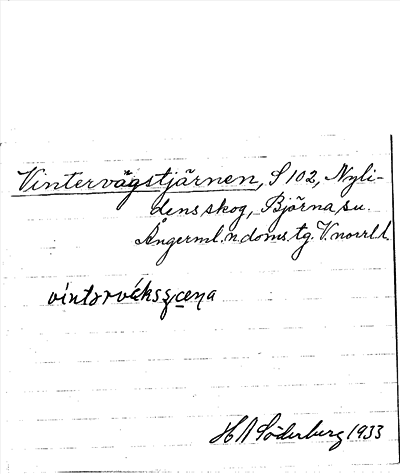 Vintervägstjärnen, S 102, Nyli-
dens skog, Björna sn.
Ångerml. n. doms tg. V.norrl. l.
víntərvä̀ksçæṇa
H A Söderberg 1933